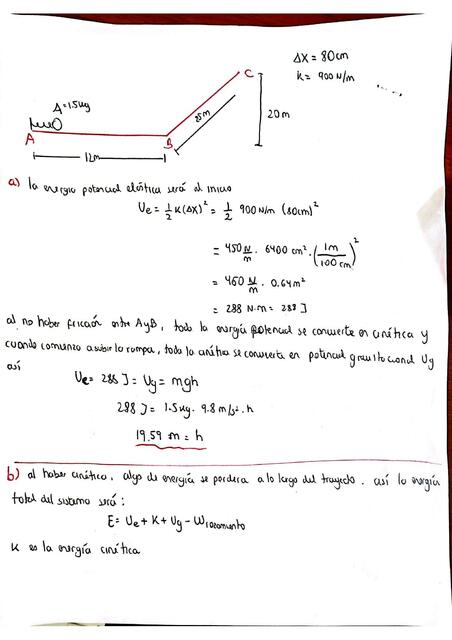 ΔX = 80cm
K = 900 N/m
C
A=1.5kg
25m
20m
A
B
12m
a) la energia potencial elástica será al inicio
Ue = 1/2 K(ΔX)² = 1/2 900 N/m (80cm)²
= 450 N/m · 6400 cm² · (1m/100cm)²
= 450 N/m · 0.64m²
= 288 N·m = 288 J
al no haber fricción entre A y B, toda la energía potencial se convierte en cinética y
cuando comienza a subir la rampa, toda la cinética se convierte en potencial gravitacional Ug
así
Ue = 288 J = Ug = mgh
288 J = 1.5kg · 9.8 m/s² · h
19.59 m = h
b) al haber cinética, algo de energía se perdera a lo largo del trayecto. así la energía
total del sistema será:
E = Ue + K + Ug - Wrozamiento
K es la energía cinética